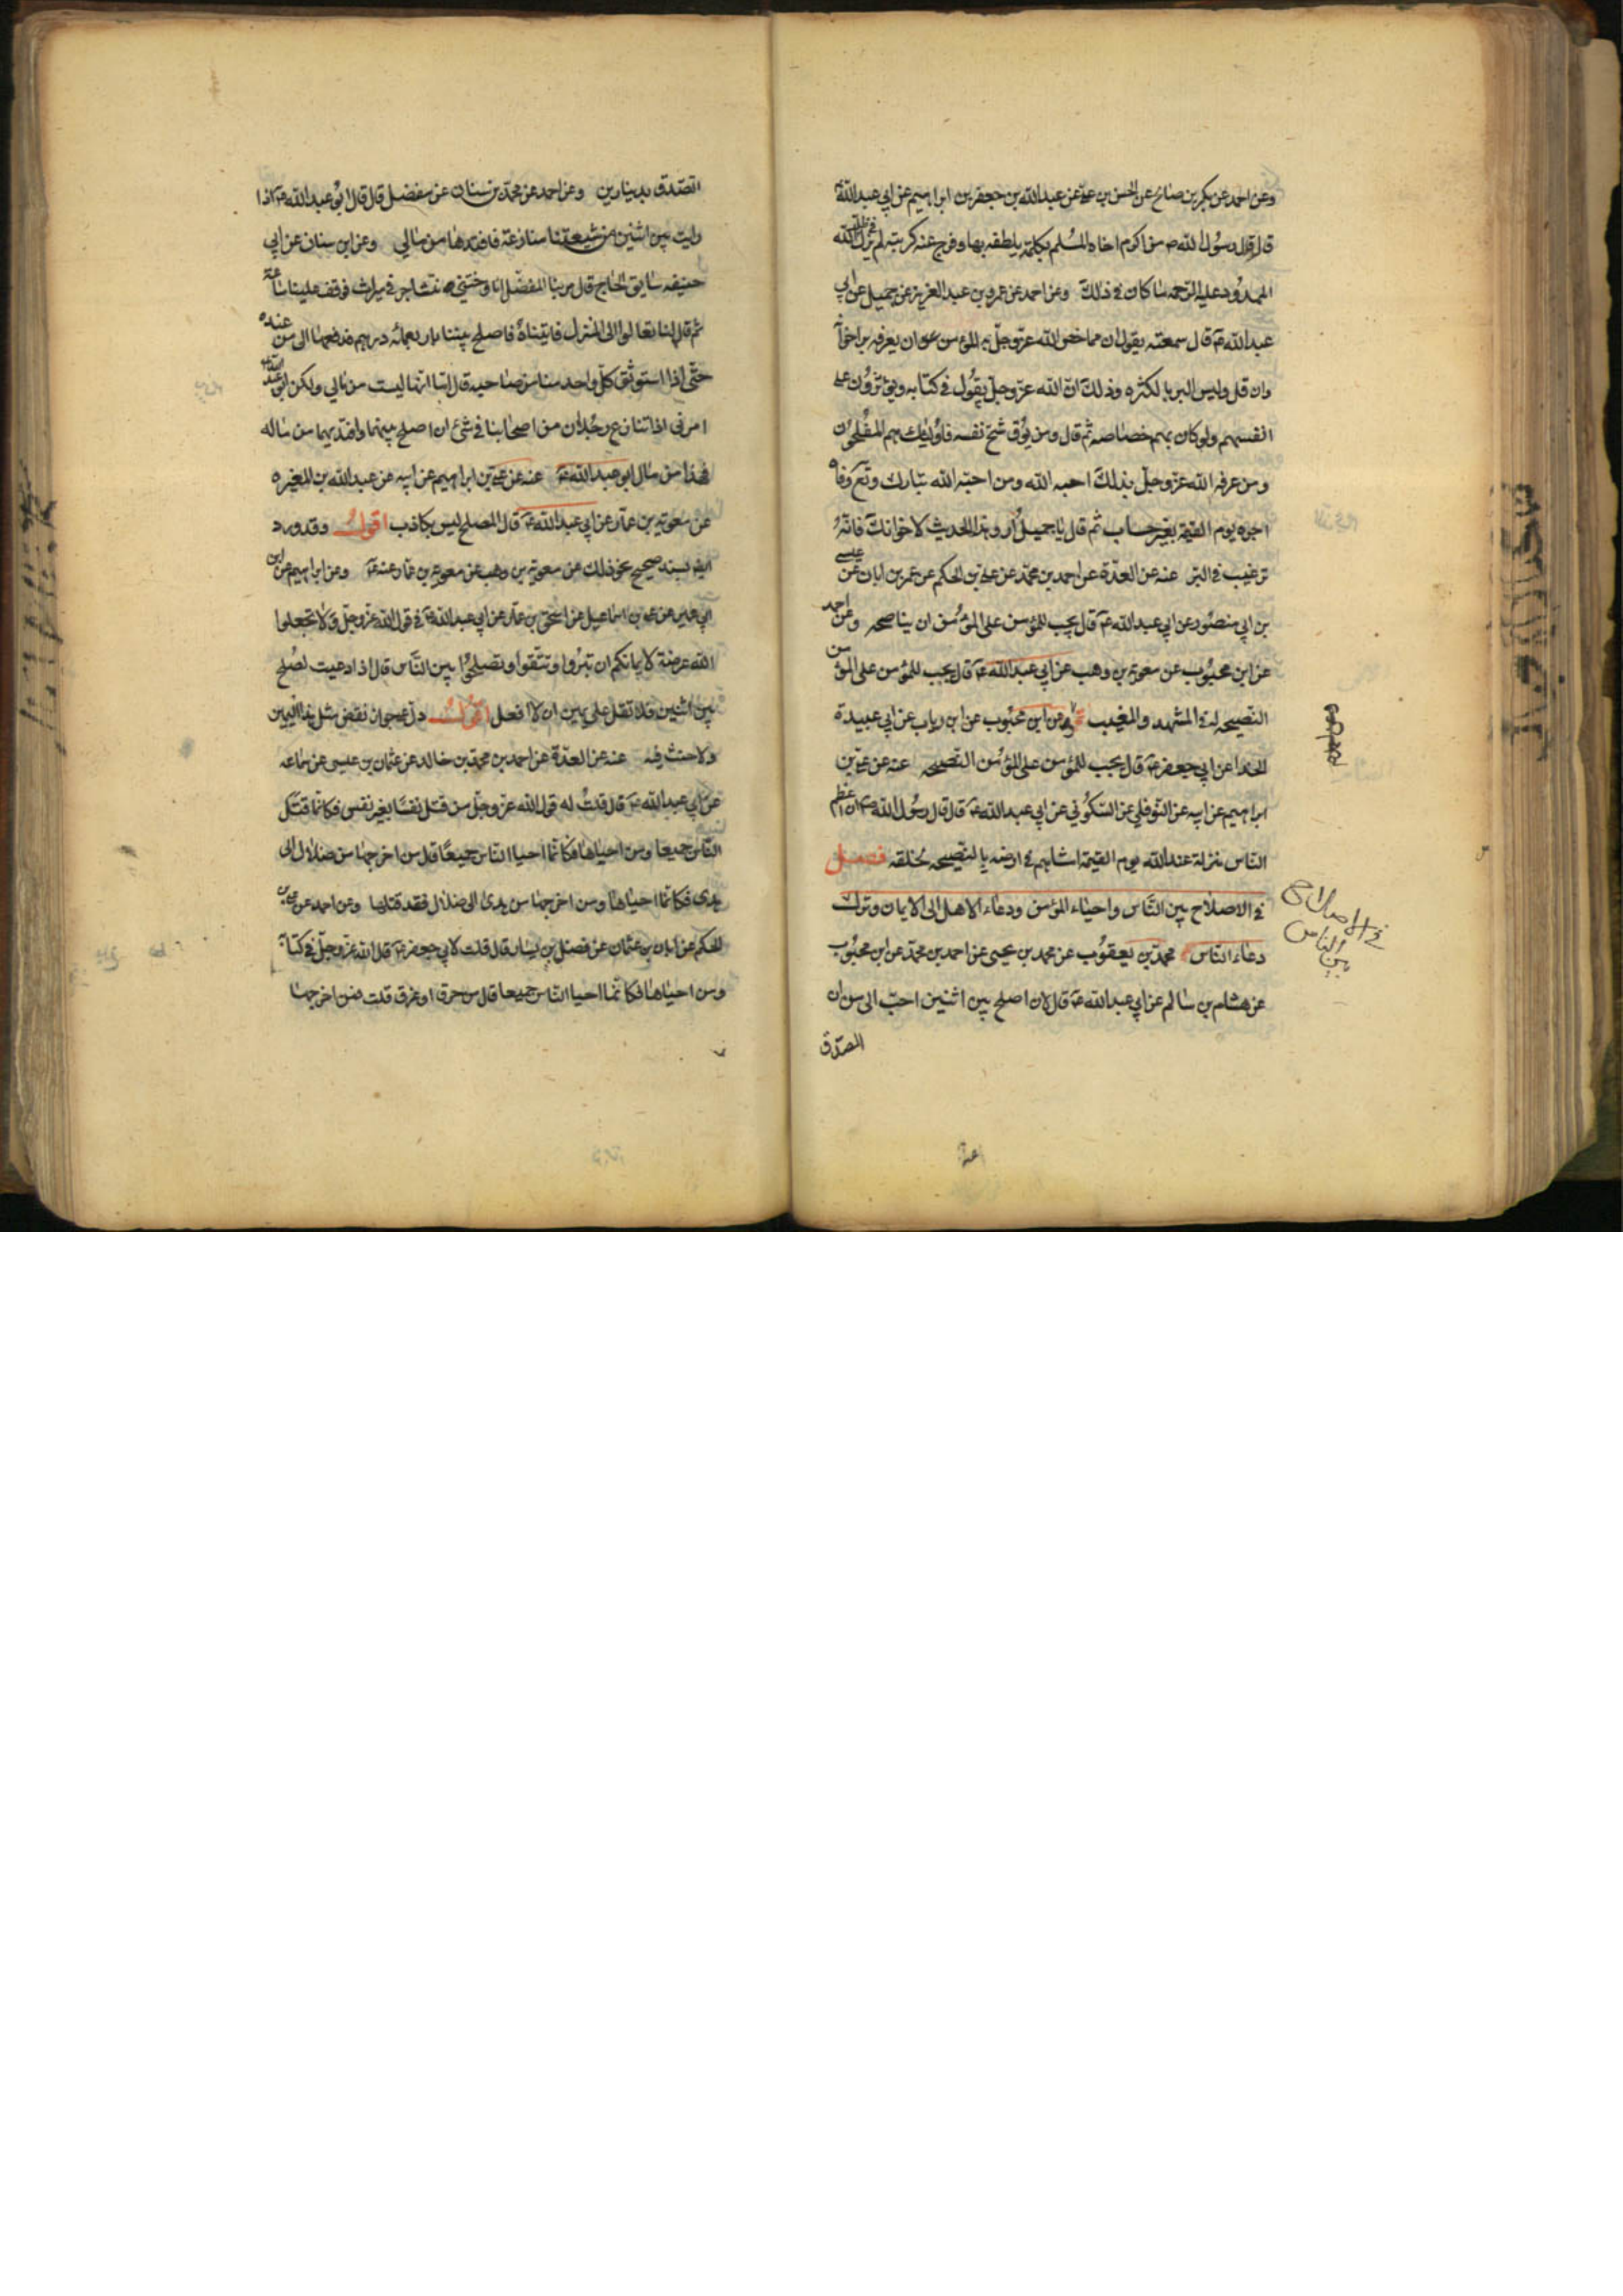 وعن احمد عن بكر بن صالح عن الحسن بن علي عن عبد الله بن جعفر بن ابراهيم عن ابي عبد الله ع
قال قال رسول الله ص من اكرم اخاه المسلم بكلمة يلطفه بها وفرج عنه كربته لم يزل في ظل الله
الممدود عليه الرحمة ما كان في ذلك وعن احمد عن عمرو بن عبد العزيز عن جميل عن ابي
عبد الله ع قال سمعته يقول ان مما خص الله عز وجل به المؤمن ان يعرفه بر اخوانه
وان قل وليس البر بالكثرة وذلك ان الله عز وجل يقول في كتابه ويؤثرون على
انفسهم ولو كان بهم خصاصه ثم قال ومن يوق شح نفسه فاولئك هم المفلحون
ومن عرفه الله عز وجل بذلك احبه الله ومن احبه الله تبارك وتع وفاه
اجره يوم القيمة بغير حساب ثم قال يا جميل ارو هذا الحديث لاخوانك فانه
ترغيب في البر عنه عن العدة عن احمد بن محمد عن علي بن الحكم عن عمر بن ابان عن عيسى
بن ابي منصور عن ابي عبد الله ع قال يجب للمؤمن على المؤمن ان يناصحه وعن احمد
عن ابن محبوب عن معوية بن وهب عن ابي عبد الله ع قال يجب للمؤمن على المؤمن
النصيحه له في المشهد والمغيب وعن ابن محبوب عن ابن رياب عن ابي عبيدة
الحذا عن ابي جعفر ع قال يجب للمؤمن على المؤمن النصيحه عنه عن علي بن
ابراهيم عن ابيه عن النوفلي عن السكوني عن ابي عبد الله ع قال قال رسول الله ص ان اعظم
الناس منزلة عند الله يوم القيمة امشاهم في ارضه بالنصيحه لخلقه فصل
في الاصلاح بين الناس واحياء المؤمن ودعاء الاهل الى الايمان وترك
دعاء الناس محمد بن يعقوب عن محمد بن يحيى عن احمد بن محمد عن ابن محبوب
عن هشام بن سالم عن ابي عبد الله ع قال لان اصلح بين اثنين احب الى من ان
اتصدق
في الاصلاح
بين الناس
اتصدق بدينارين وعن احمد عن محمد بن سنان عن مفضل قال قال ابو عبد الله ع اذا
رايت بين اثنين من شيعتنا منازعة فافتدها من مالي وعن ابن سنان عن ابي
حنيفه سايق الحاج قال مر بنا المفضل انا وختني نتشاجر في ميراث فوقف علينا ساعة
ثم قال لنا تعالوا الى المنزل فاتيناه فاصلح بيننا باربعمائه درهم فدفعها الى من عنده
حتى اذا استوثق كل واحد منا من صاحبه قال اما انها ليست من مالي ولكن ابو عبد الله ع
امرني اذا تنازع رجلان من اصحابنا في شئ ان اصلح بينهما وافتديهما من ماله
فهذا من مال ابو عبد الله ع عنه عن علي بن ابراهيم عن ابيه عن عبد الله بن المغيره
عن معوية بن عمار عن ابي عبد الله ع قال المصلح ليس بكاذب اقول وقد ورد
ايضا بسند صحيح نحو ذلك عن معوية بن وهب عن معوية بن عمار عنه ع وعن ابراهيم عن ابن
ابي عمير عن علي بن اسماعيل عن اسحق بن عمار عن ابي عبد الله ع في قول الله عز وجل ولا تجعلوا
الله عرضة لايمانكم ان تبروا وتتقوا وتصلحوا بين الناس قال اذا دعيت لصلح
بين اثنين فلا تقل علي يمين ان لا افعل اقول دل على جواز نقض مثل هذا اليمين
ولا حنث فيه عنه عن العدة عن احمد بن محمد بن خالد عن عثمان بن عيسى عن سماعه
عن ابي عبد الله ع قال قلت له قول الله عز وجل من قتل نفسا بغير نفس فكانما قتل
الناس جميعا ومن احياها فكانما احيا الناس جميعا قال من اخرجها من ضلال الى
هدى فكانما احياها ومن اخرجها من هدى الى ضلال فقد قتلها وعن احمد عن علي بن
الحكم عن ابان بن عثمان عن فضيل بن يسار قال قلت لابي جعفر ع قال الله عز وجل في كتابه
ومن احياها فكانما احيا الناس جميعا قال من حرق او غرق قلت فمن اخرجها